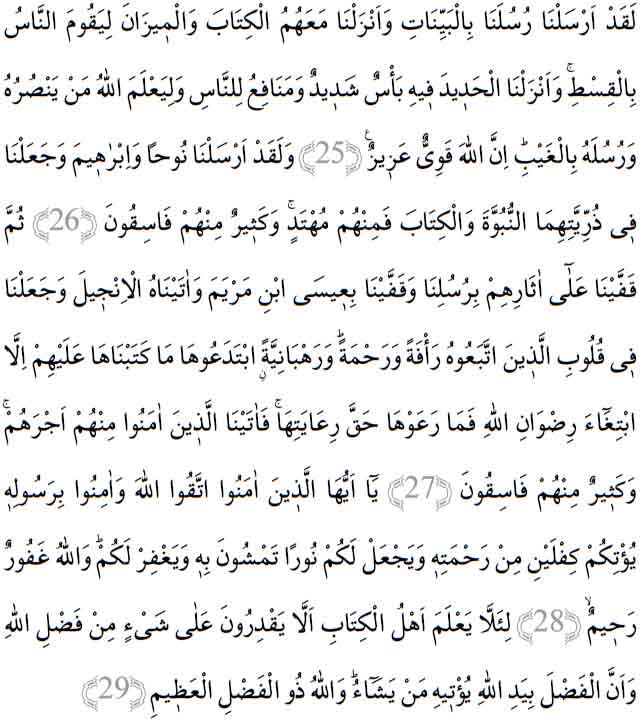 لَقَدْ اَرْسَلْنَا رُسُلَنَا بِالْبَيِّنَاتِ وَاَنْزَلْنَا مَعَهُمُ الْكِتَابَ وَالْم۪يزَانَ لِيَقُومَ النَّاسُ
بِالْقِسْطِۚ وَاَنْزَلْنَا الْحَد۪يدَ ف۪يهِ بَأْسٌ شَد۪يدٌ وَمَنَافِعُ لِلنَّاسِ وَلِيَعْلَمَ اللّٰهُ مَنْ يَنْصُرُهُ
وَرُسُلَهُ بِالْغَيْبِۜ اِنَّ اللّٰهَ قَوِيٌّ عَز۪يزٌ۟ ﴿25﴾ وَلَقَدْ اَرْسَلْنَا نُوحاً وَاِبْرٰه۪يمَ وَجَعَلْنَا
ف۪ى ذُرِّيَّتِهِمَا النُّبُوَّةَ وَالْكِتَابَ فَمِنْهُمْ مُهْتَدٍۚ وَكَث۪يرٌ مِنْهُمْ فَاسِقُونَ ﴿26﴾ ثُمَّ
قَفَّيْنَا عَلٰٓى اٰثَارِهِمْ بِرُسُلِنَا وَقَفَّيْنَا بِع۪يسَى ابْنِ مَرْيَمَ وَاٰتَيْنَاهُ الْاِنْج۪يلَ وَجَعَلْنَا
ف۪ى قُلُوبِ الَّذ۪ينَ اتَّبَعُوهُ رَأْفَةً وَرَحْمَةًۜ وَرَهْبَانِيَّةًۨ ابْتَدَعُوهَا مَا كَتَبْنَاهَا عَلَيْهِمْ اِلَّا
ابْتِغَٓاءَ رِضْوَانِ اللّٰهِ فَمَا رَعَوْهَا حَقَّ رِعَايَتِهَاۚ فَاٰتَيْنَا الَّذ۪ينَ اٰمَنُوا مِنْهُمْ اَجْرَهُمْۚ
وَكَث۪يرٌ مِنْهُمْ فَاسِقُونَ ﴿27﴾ يَٓا اَيُّهَا الَّذ۪ينَ اٰمَنُوا اتَّقُوا اللّٰهَ وَاٰمِنُوا بِرَسُولِه۪
يُؤْتِكُمْ كِفْلَيْنِ مِنْ رَحْمَتِه۪ وَيَجْعَلْ لَكُمْ نُورًا تَمْشُونَ بِه۪ وَيَغْفِرْ لَكُمْۜ وَاللّٰهُ غَفُورٌ
رَح۪يمٌۙ ﴿28﴾ لِئَلَّا يَعْلَمَ اَهْلُ الْكِتَابِ اَلَّا يَقْدِرُونَ عَلٰى شَىْءٍ مِنْ فَضْلِ اللّٰهِ
وَاَنَّ الْفَضْلَ بِيَدِ اللّٰهِ يُؤْت۪يهِ مَنْ يَشَٓاءُۜ وَاللّٰهُ ذُو الْفَضْلِ الْعَظ۪يمِ ﴿29﴾